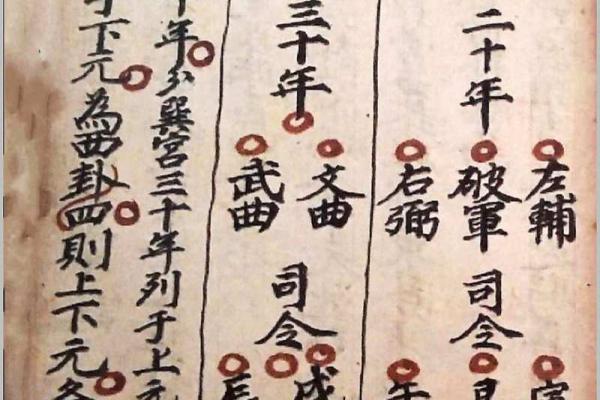 二十年
左輔
破軍
右弼
司令
三十年
文曲
武曲
司令
戌
辰
十年分巽宮三十年列于上元
下元為西卦四則上下元各